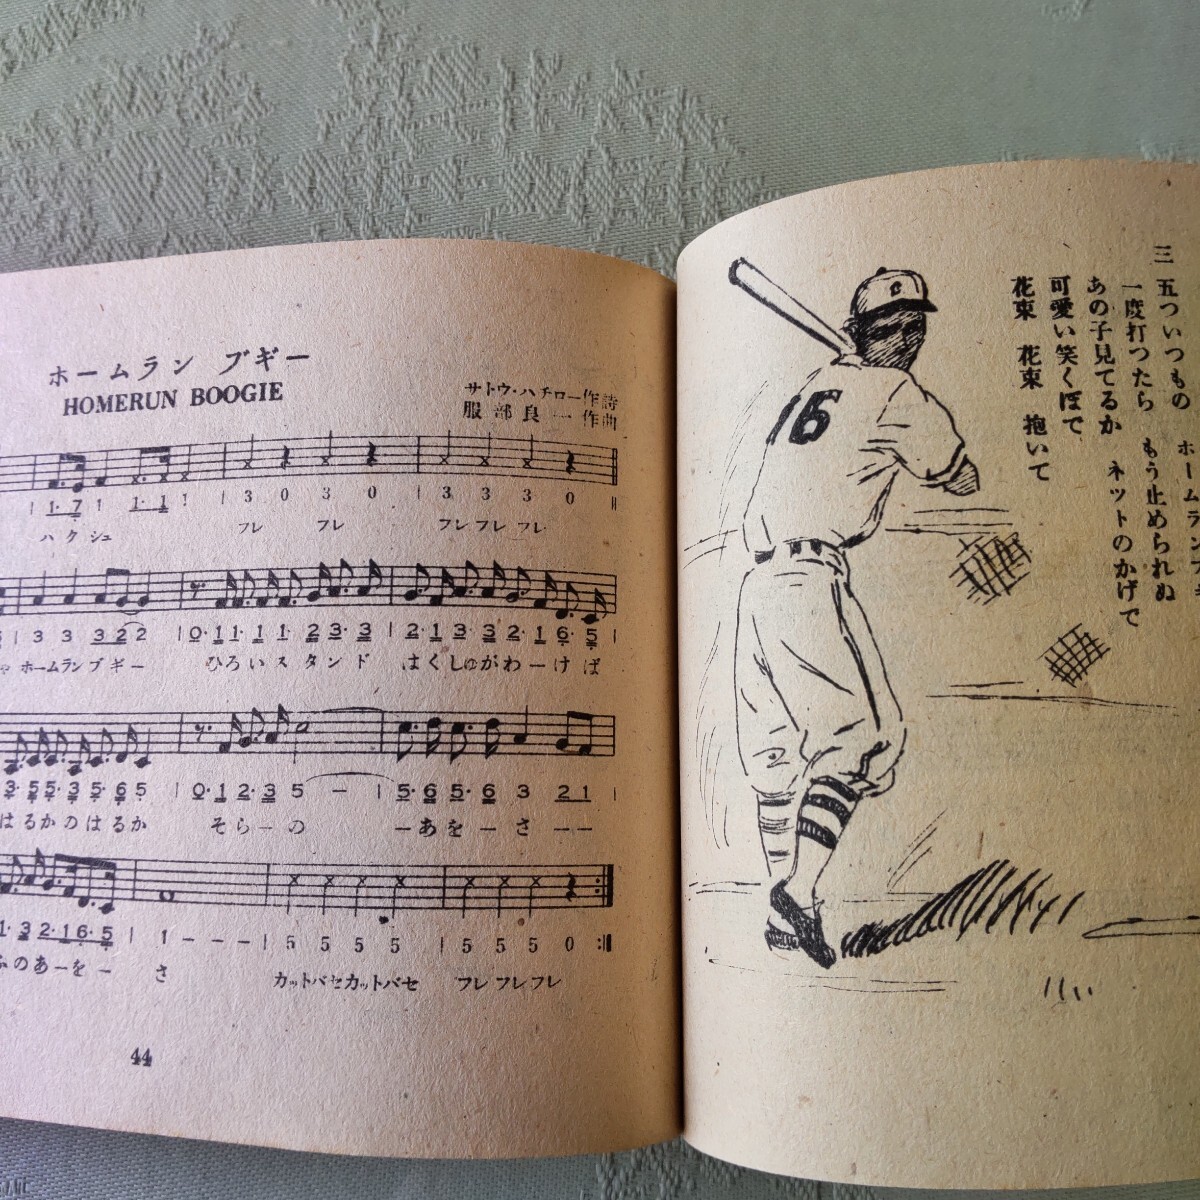 ホームラン ブギー
HOMERUN BOOGIE
サトウ・ハチロー作詩
服部良一作曲
1·7 1 1·1 1 | 3 0 3 0 | 3 3 3 0
ハクシュ フレ フレ フレフレフレ
3 3 3 2 2 | 0·1 1·1 2 3·3 | 2·1 3·3 2·1 6·5 |
ホームランブギー ひろいスタンド はくしゅがわーけば
3·5 5·3 5·6 5 | 0·1 2·3 5 — | 5·6 5·6 3 2 1 |
はるかのはるか そらーの ーあをーさーー
1·3 2·1 6·5 | 1 - - - | 5 5 5 5 | 5 5 5 0 :||
のあーをー さ カットバセカットバセ フレフレフレ
44
三 五ついつもの ホームランブギ
一度打つたら もう止められぬ
あの子見てるか ネツトのかげで
可愛い笑くぼで
花束 花束 抱いて
16